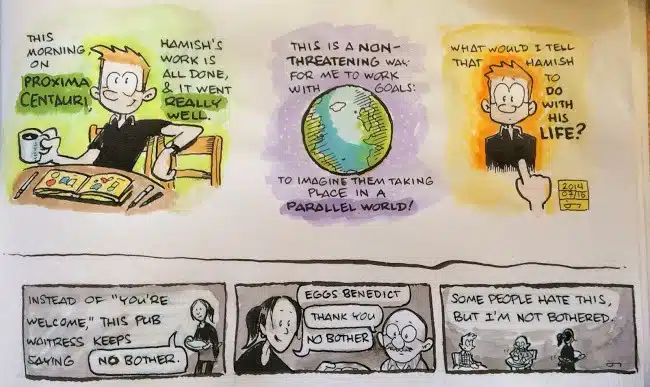 THIS
MORNING,
ON
PROXIMA
CENTAURI,
HAMISH'S
WORK IS
ALL DONE,
& IT WENT
REALLY
WELL.
THIS IS A NON-
THREATENING WAY
FOR ME TO WORK
WITH GOALS:
TO IMAGINE THEM TAKING
PLACE IN A
PARALLEL WORLD!
WHAT WOULD I TELL
THAT HAMISH
TO
DO
WITH
HIS
LIFE?
2014
07/16
INSTEAD OF "YOU'RE
WELCOME," THIS PUB
WAITRESS KEEPS
SAYING
NO BOTHER.
EGGS BENEDICT
THANK YOU
NO BOTHER
SOME PEOPLE HATE THIS,
BUT I'M NOT BOTHERED.